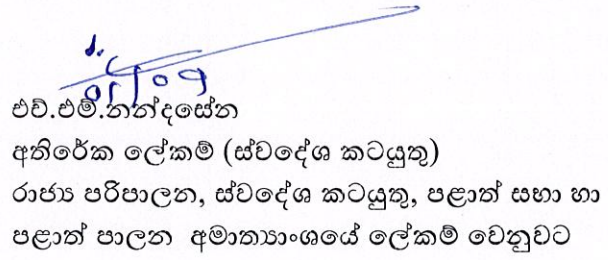 එච්.එම්.නන්දසේන
අතිරේක ලේකම් (ස්වදේශ කටයුතු)
රාජ්‍ය පරිපාලන, ස්වදේශ කටයුතු, පළාත් සභා හා
පළාත් පාලන අමාත්‍යාංශයේ ලේකම් වෙනුවට